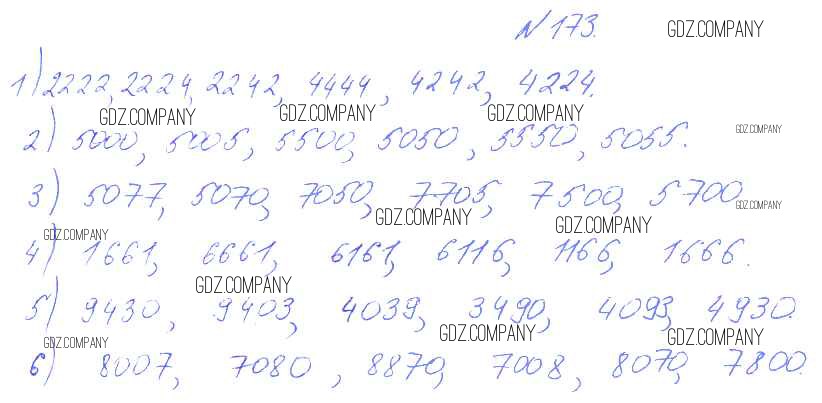 №173. GDZ.COMPANY
1) 2222, 2224, 2242, 4444, 4242, 4224.
GDZ.COMPANY GDZ.COMPANY GDZ.COMPANY
2) 5000, 5005, 5500, 5050, 5550, 5055. GDZ.COMPANY
3) 5077, 5070, 7050, 7705, 7500, 5700
GDZ.COMPANY GDZ.COMPANY GDZ.COMPANY GDZ.COMPANY
4) 1661, 6661, 6161, 6116, 1166, 1666.
GDZ.COMPANY
5) 9430, 9403, 4039, 3490, 4093, 4930.
GDZ.COMPANY GDZ.COMPANY GDZ.COMPANY
6) 8007, 7080, 8870, 7008, 8070, 7800.